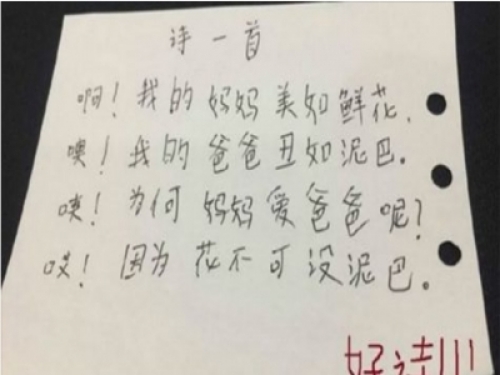 诗一首
啊！我的妈妈美如鲜花.
噢！我的爸爸丑如泥巴。
咦！为何妈妈爱爸爸呢？
哎！因为花不可没泥巴。
好诗!!!